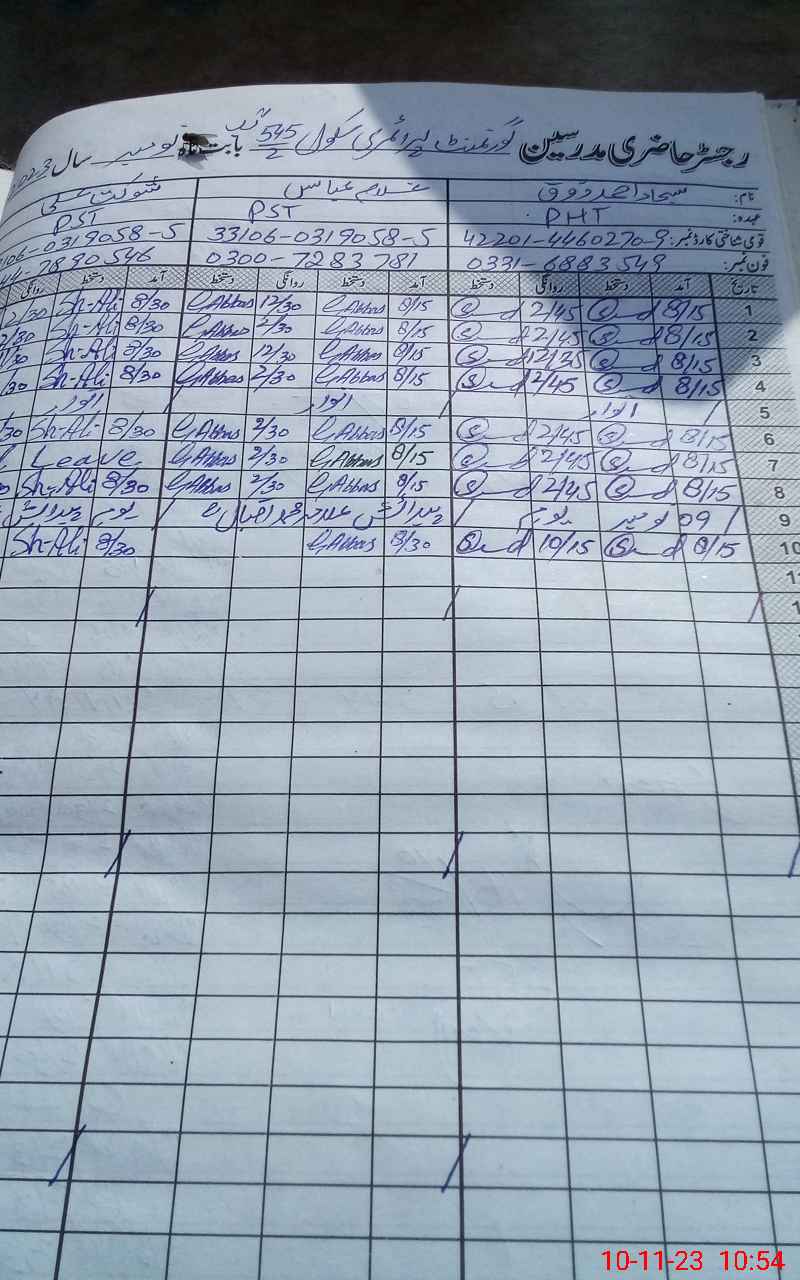 رجسٹر حاضری مدرسین گورنمنٹ پرائمری سکول 545/2 گ ب بابت ماہ نومبر سال 2023
نام: سجاد احمد فاروق غلام عباس شوکت علی
عہدہ: PHT PST PST
قومی شناختی کارڈ نمبر: 42201-4460270-9 33106-0319058-5 106-0319058-5
فون نمبر: 0331-6883549 0300-7283781 44-7890546
تاریخ آمد دستخط روانگی دستخط آمد دستخط روانگی دستخط آمد دستخط روانگی
1 8/15 2/45 8/15 GAbbas 12/30 GAbbas 8/30 Sh-Ali 2/30
2 8/15 2/45 8/15 GAbbas 2/30 GAbbas 8/30 Sh-Ali 2/30
3 8/15 12/25 8/15 GAbbas 12/30 GAbbas 8/30 Sh-Ali /30
4 8/15 2/45 8/15 GAbbas 2/30 GAbbas 8/30 Sh-Ali /30
5 اتوار اتوار اتوار
6 8/15 2/45 8/15 GAbbas 2/30 GAbbas 8/30 Sh-Ali /30
7 8/15 2/45 8/15 GAbbas 2/30 GAbbas Leave
8 8/15 2/45 8/15 GAbbas 2/30 GAbbas 8/30 Sh-Ali
9 09 نومبر یوم پیدائش علامہ محمد اقبال یوم پیدائش
10 8/15 10/15 8/30 GAbbas 8/30 Sh-Ali
10-11-23 10:54